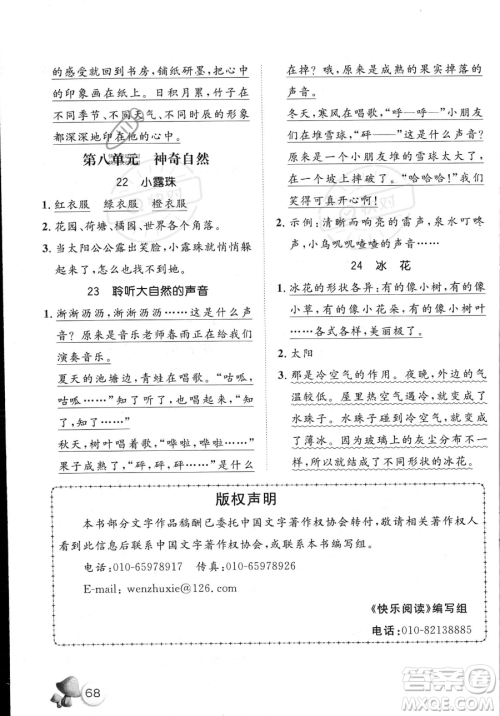 的感受就回到书房，铺纸研墨，把心中
的印象画在纸上。日积月累，竹子在
不同季节、不同天气、不同时辰的形象
都深深地印在他的心中。
第八单元 神奇自然
22 小露珠
1. 红衣服 绿衣服 橙衣服
2. 花园、荷塘、桃园、世界各个角落。
3. 当太阳公公露出笑脸，小露珠就悄悄躲
起来，不见踪迹。
23 聆听大自然的声音
1. 渐渐沥沥，渐渐沥沥……是什么声
音？原来是音乐老师春雨正在给我们
演奏音乐。
夏天的池塘边，青蛙在唱歌。“咕呱，
咕呱……”知了听了，也唱起来“知
了，知了……”
秋天，树叶唱着歌，“哗啦，哗啦……”
果子成熟了，“砰，砰……”是什么
在掉？哦，原来是成熟的果实掉落的
声音。
冬天，寒风在唱歌，“呼—呼—”小朋友
们在堆雪球，“砰——”这是什么声音？
原来是一个小朋友把堆的雪球弄得太
大了，在坡上摔得直打滚儿，小朋友
笑得很大声，“哈哈，哈哈……”可真
开心啊！
2. 示例：清晰而响亮的雷声，泉水叮咚
声，小鸟叽叽喳喳的声音。
24 冰花
1. 冰花的形状各异：有的像树，有的像
小草，有的像花朵，有的像小树……
有的像……，美丽极了。
2. 太阳
3. 那是冷空气的作用。夜晚，外面的气
温较低。屋里热空气遇冷，就变成了
水珠子。水珠子碰到冷空气，就变成
了薄冰。因为玻璃上的灰尘分布不
同，就结成了不同形状的冰花。
版权声明
本书部分文字作品稿酬已委托中国文字著作权协会转付，敬请相关著作权人
看到此信息后联系中国文字著作权协会，或联系本书编写组。
电话：010-65978917 传真：010-65978926
E-mail：wenzhuxie@126.com
《快乐阅读》编写组
电话：010-82138885
68